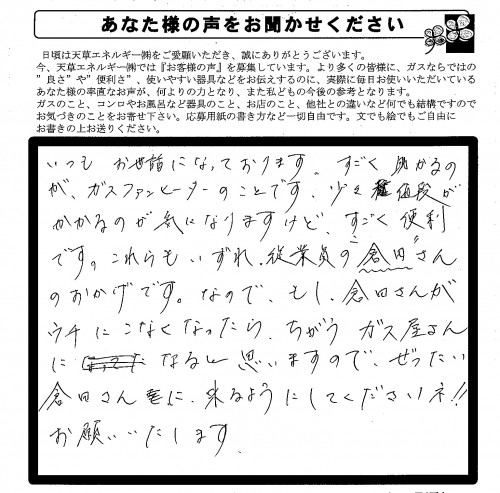 あなた様の声をお聞かせください
日頃は天草エネルギー㈱をご愛願いただき、誠にありがとうございます。
今、天草エネルギー㈱では『お客様の声』を募集しています。より多くの皆様に、ガスならではの
”良さ”や”便利さ”、使いやすい器具などをお伝えするのに、実際に毎日お使いいただいている
あなた様の率直なお声が、何よりの力となり、また私どもの今後の参考となります。
ガスのこと、コンロやお風呂など器具のこと、お店のこと、他社との違いなど何でも結構ですので
お気づきのことをお寄せ下さい。応募用紙の書き方など一切自由です。文でも絵でもご自由に
お書きの上お送りください。
いつも お世話になっております。すごく助かるの
が、ガスファンヒーターのことです。少々値段が
かかるのが気になりますけど、すごく便利
です。これらもいずれ、従業員の“倉田”さん
のおかげです。なので、もし、倉田さんが
ウチにこなくなったら、ちがう ガス屋さん
に なると思いますので、ぜったい
倉田さんに、来るようにしてくださいネ!!
お願いいたします。